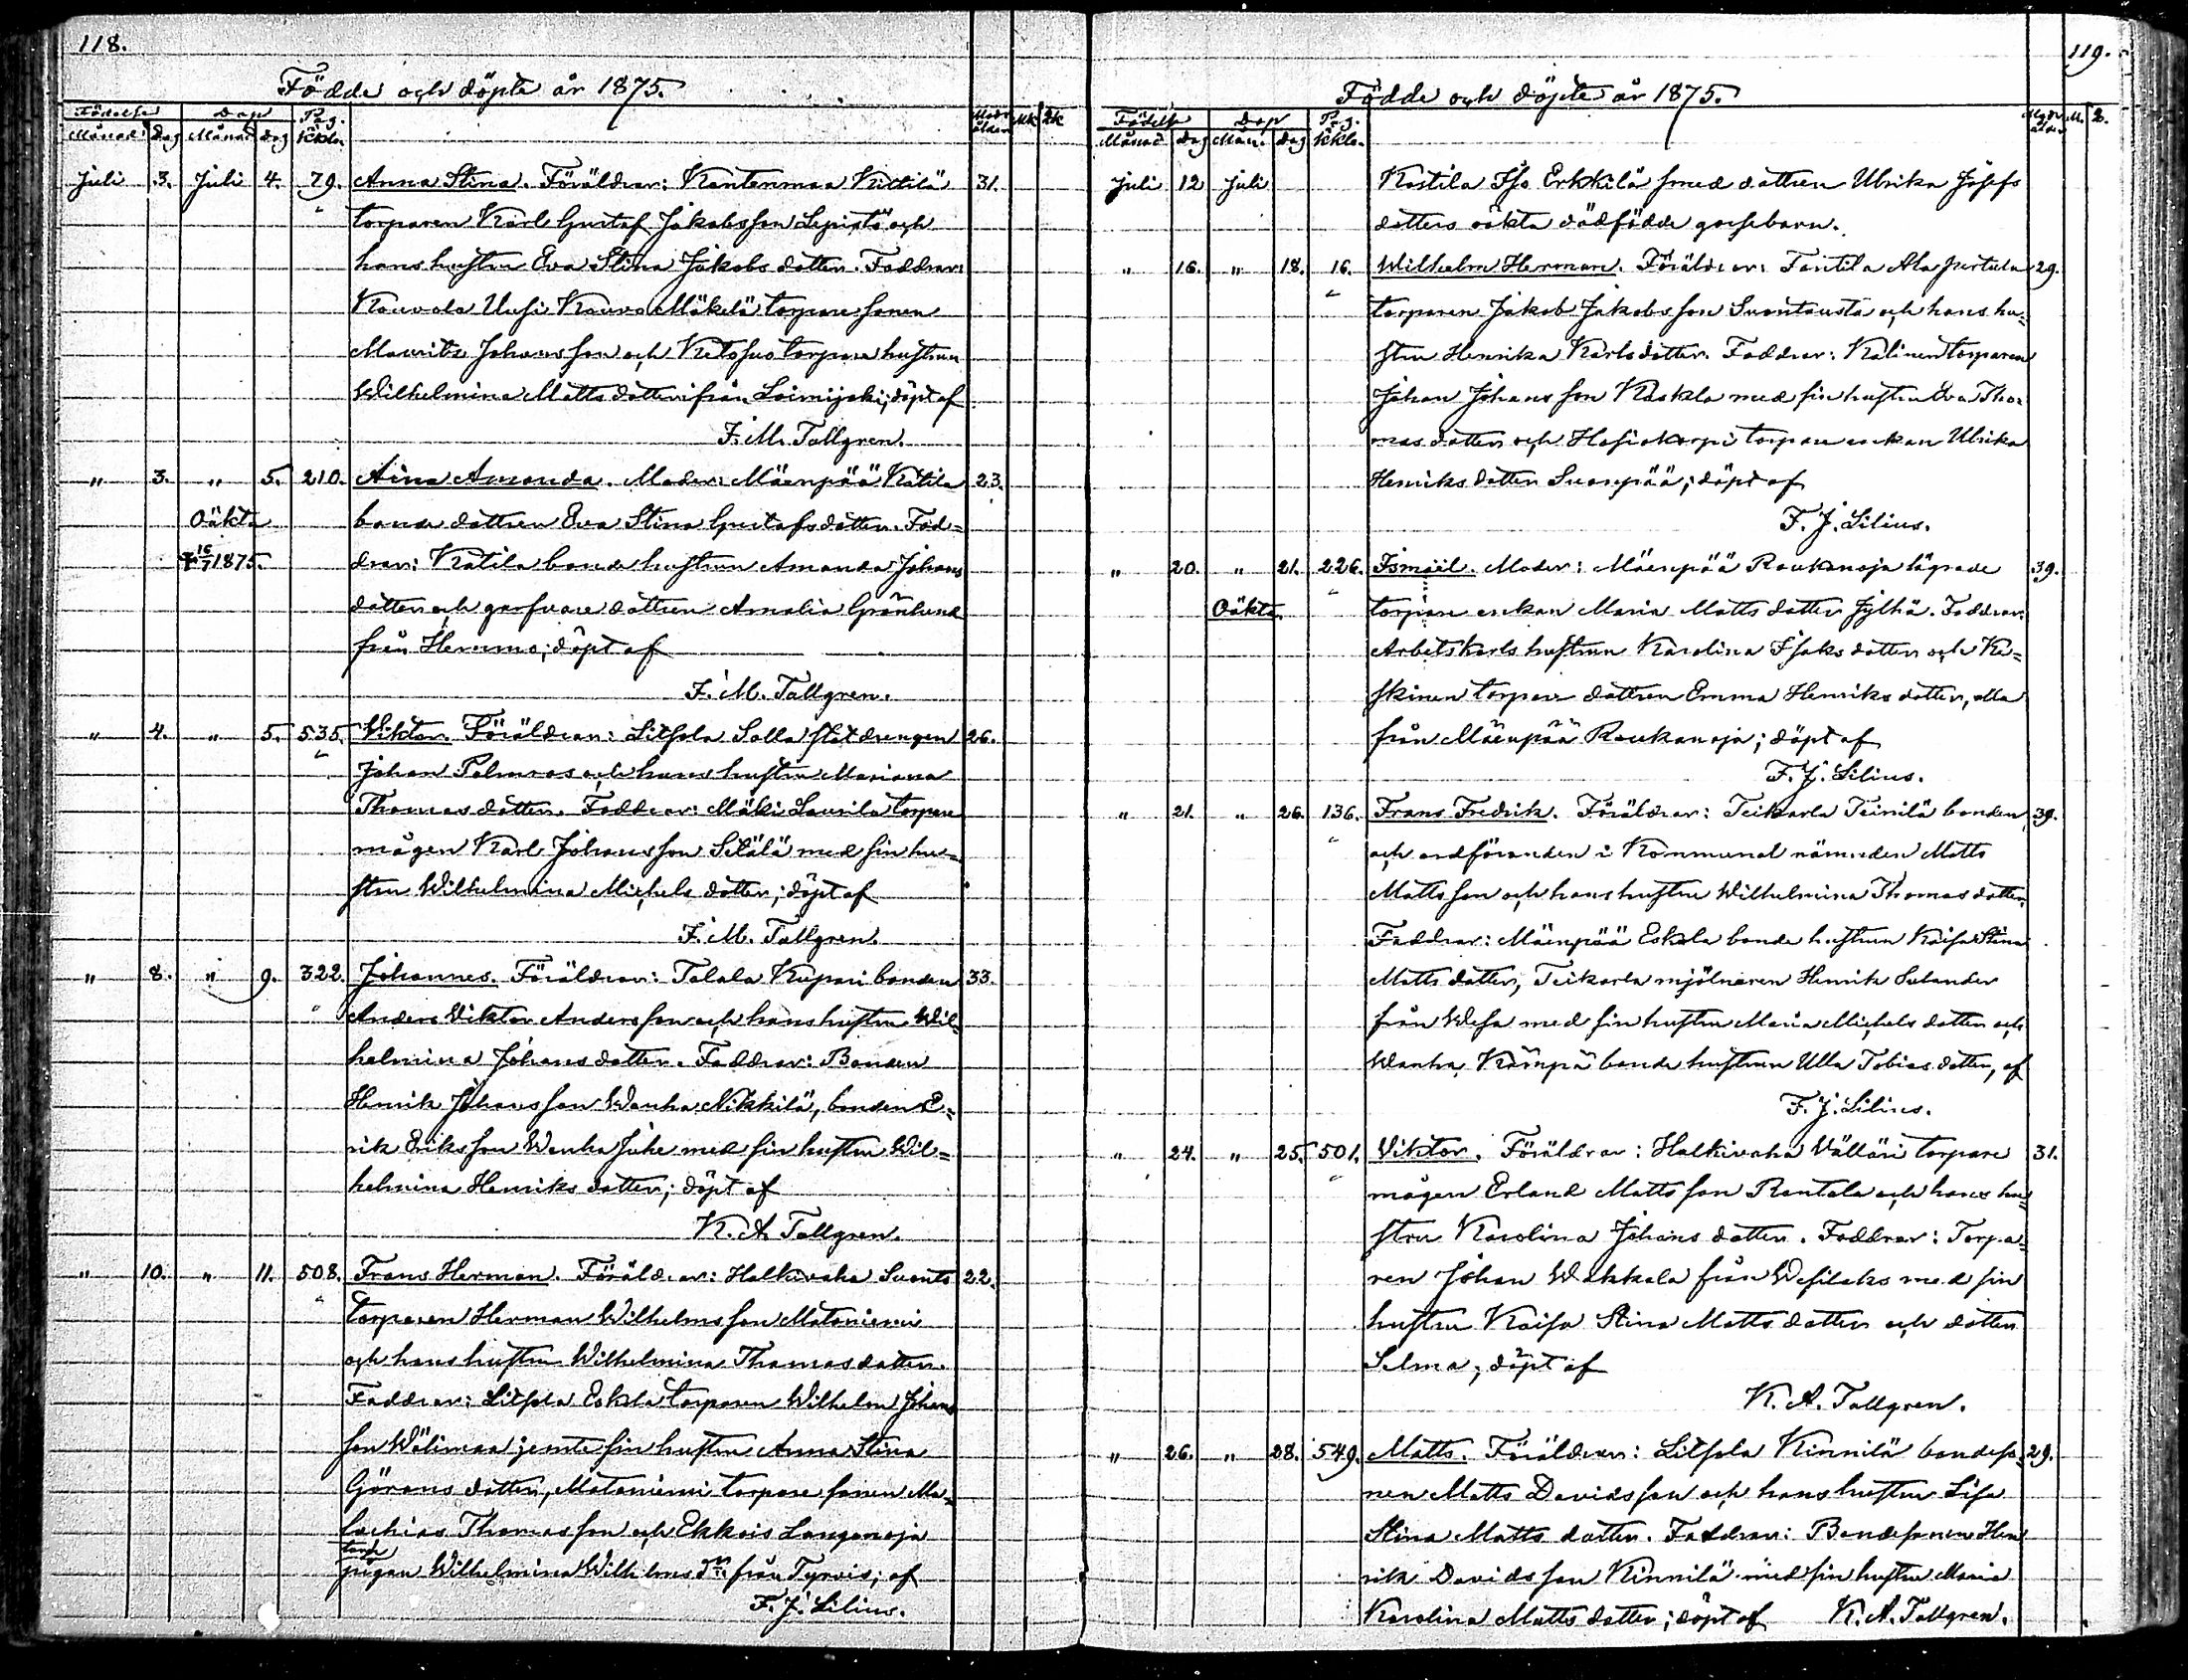 118.
Födde och döpte år 1875.
Födelse Dop Pag. Moders
Månad Dag Månad Dag kkbn ålder Mk
Juli 3. Juli 4. 79. Anna Stina. Föräldrar: Kantenmaa Kittilä 31.
torparen Karl Gustaf Jakobsson Lepistö och
hans hustru Eva Stina Jakobs dotter. Faddrar:
Kauvola Uusi Kauro Mäkelä torparesonen
Mauritz Johansson och Ketosuo torpare hustrun
Wilhelmina Matts dotter ifrån Loimijoki; döpt af
F. M. Tallgren.
" 3. " 5. 210. Aina Amanda. Moder: Mäenpää Katila 23.
Oäkta bonde dottren Eva Stina Gustafs dotter. Fad=
† 16/7 1875. drar: Katila bonde hustrun Amanda Johans
dotter och garfvare dottren Amalia Grönlund
från Humma; döpt af
F. M. Tallgren.
" 4. " 5. 535. Viktor. Föräldrar: Litsola Salla statdrengen 26.
Johan Palmroos och hans hustru Mariana
Thomas dotter. Faddrar: Mäki Laurila torpare
mågen Karl Johansson Sitälä med sin hu=
stru Wilhelmina Michels dotter; döpt af
F. M. Tallgren.
" 8. " 9. 322. Johannes. Föräldrar: Talala Kupari bonden 33.
Anders Viktor Andersson och hans hustru Wil=
helmina Johans dotter. Faddrar: Bonden
Henrik Johansson Wanha Nikkilä, bonden E=
rik Eriksson Wanha Juhe med sin hustru Wil=
helmina Henriks dotter; döpt af
K. A. Tallgren.
" 10. " 11. 508. Frans Herman. Föräldrar: Halkivaha Suonto 22.
torparen Herman Wilhelmsson Mataniemi
och hans hustru Wilhelmina Thomas dotter.
Faddrar: Litsola Eskola torparen Wilhelm Johans
son Wälimaa jemte sin hustru Anna Stina
Görans dotter, Mataniemi torpare sonen Ma=
lachias Thomasson och Ekkois Langanoja
torp
pigan Wilhelmina Wilhelms dtr från Tyrvis; af
F. J. Lilius.
119.
Födde och döpte år 1875.
Födelse Dop Pag. Moders
Månad Dag Mån. Dag kkbn. ålder M.
Juli 12 Juli Kostila Iso Erkkilä smed dottren Ulrika Josefs
dotters oäkta dödfödde gossebarn.
" 16. " 18. 16. Wilhelm Herman. Föräldrar: Tantila Ala pertula 29.
torparen Jakob Jakobsson Suontausta och hans hu=
stru Henrika Karls dotter. Faddrar: Kalinen torparen
Johan Johansson Kaskla med sin hustru Eva Tho=
mas dotter och Hosiokorpi torpare enkan Ulrika
Henriks dotter Suonpää; döpt af
F. J. Lilius.
" 20. " 21. 226. Ismäil. Moder: Mäenpää Raukanoja lägrade 39.
Oäkta. torpare enkan Maria Matts dotter Jylhä. Faddrar:
Arbetskarls hustrun Karolina Isaks dotter och Ke=
skinen torpare dottren Emma Henriks dotter, alla
från Mäenpää Raukanoja; döpt af
F. J. Lilius.
" 21. " 26. 136. Frans Fredrik. Föräldrar: Teikarla Teinilä bonden 39.
och ordföranden i Kommunal nämnden Matts
Mattsson och hans hustru Wilhelmina Thomas dotter.
Faddrar: Mäenpää Eskola bonde hustrun Kaisa Stina
Matts dotter, Teikarla mjölnaren Henrik Salander
från Wesa med sin hustru Maria Michels dotter och
Wanha Kämpä bonde hustrun Ulla Tobias dotter, af
F. J. Lilius.
" 24. " 25. 501. Viktor. Föräldrar: Halkivaha Välläri torpare 31.
mågen Erland Mattsson Rantala och hans hu=
stru Karolina Johans dotter. Faddrar: Torpa=
ren Johan Wakkala från Wesilaks med sin
hustru Kaisa Stina Matts dotter och dotter
Selma; döpt af
K. A. Tallgren.
" 26. " 28. 549. Matts. Föräldrar: Litsola Kinnilä bondeso= 29.
nen Matts Davidsson och hans hustru Lisa
Stina Matts dotter. Faddrar: Bondesonen Hen
rik Davidsson Kinnilä med sin hustru Maria
Karolina Matts dotter; döpt af K. A. Tallgren.